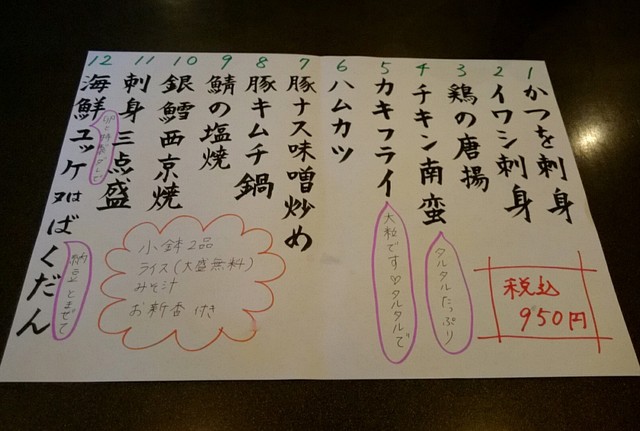 1 かつを刺身
2 イワシ刺身
3 鶏の唐揚
4 チキン南蛮
タルタルたっぷり
5 カキフライ
大粒です♡タルタルで
6 ハムカツ
7 豚ナス味噌炒め
8 豚キムチ鍋
9 鯖の塩焼
10 銀鱈西京焼
11 刺身三点盛
12 海鮮ユッケ又はばくだん
納豆とまぜて
小鉢2品
ライス(大盛無料)
みそ汁
お新香 付き
税込
950円